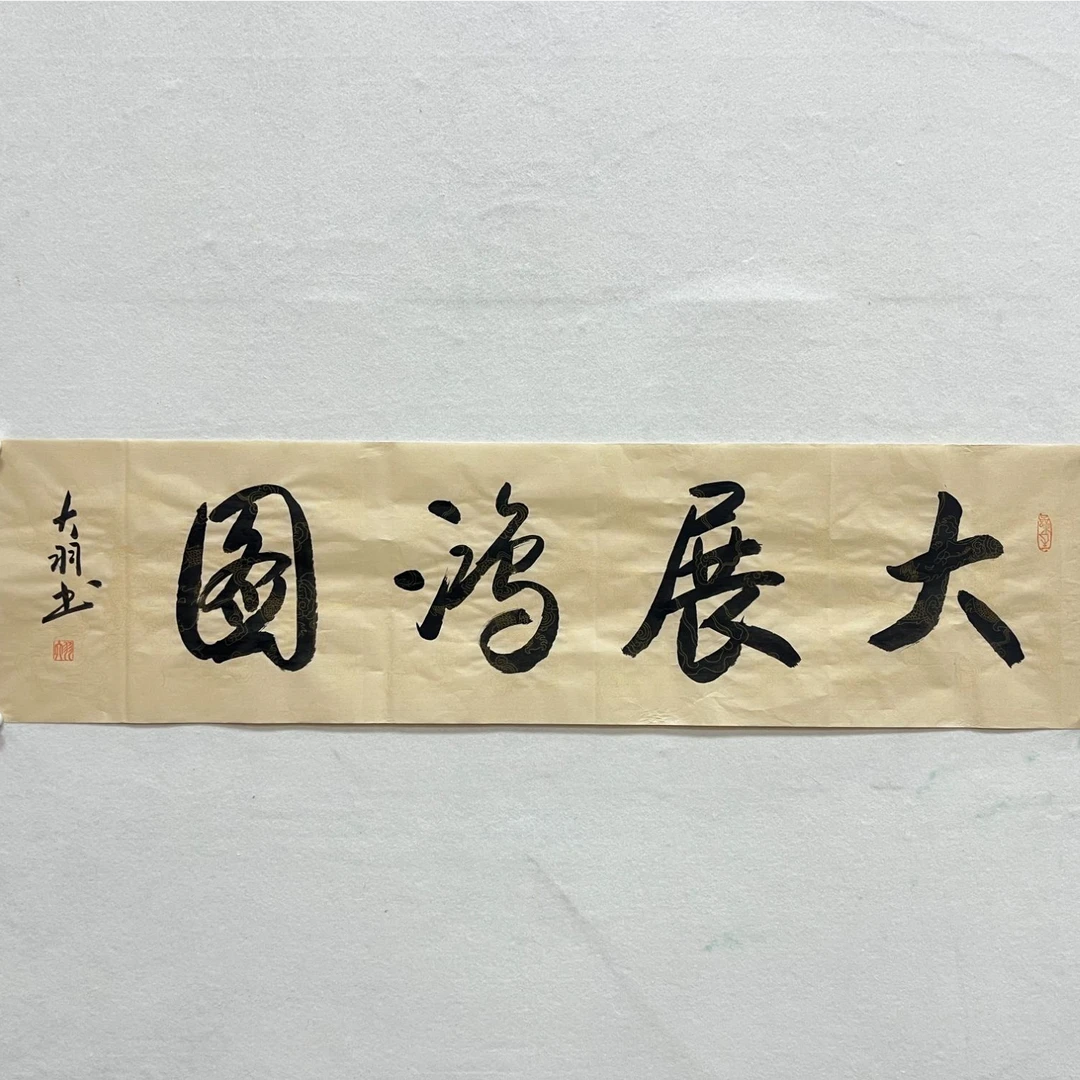 大展鴻圖
大羽书